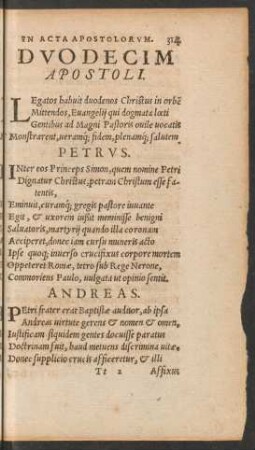 IN ACTA APOSTOLORVM. 314
DVODECIM
APOSTOLI.
LEgatos habuit duodenos Christus in orbẽ
Mittendos, Euangelij qui dogmata læti
Gentibus ad Magni Pastoris ouile uocatis
Monstrarent, ueramq́; fidem, plenamq́; salutem
PETRVS.
INter eos Princeps Simon, quem nomine Petri
Dignatur Christus, petram Christum esse fa-
tentis,
Eminuit, curamq́; gregis pastore iuuante
Egit, & uxorem iußit meminisse benigni
Saluatoris, martyrij quando illa coronam
Acciperet, donec iam cursu muneris acto
Ipse quoq; inuerso crucifixus corpore mortem
Oppeteret Romæ, tetro sub Rege Nerone,
Commoriens Paulo, uulgata ut opinio sentit.
ANDREAS.
PEtri frater erat Baptistæ auditor, ab ipsa
Andreas uirtute gerens & nomen & omen,
Iustificam siquidem gentes docuisse paratus
Doctrinam fuit, haud metuens discrimina uitæ.
Donec supplicio crucis afficeretur, & illi
Tt 2 Affixus